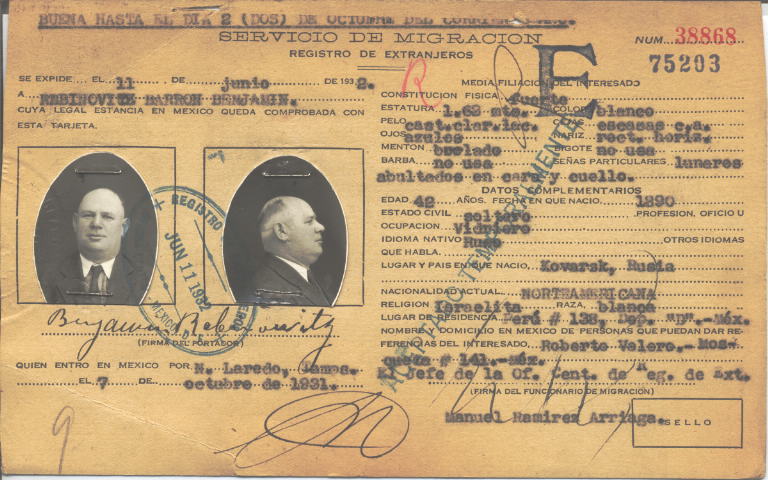 BUENA HASTA EL DIA 2 (DOS) DE OCTUBRE DEL CORRIENTE
SERVICIO DE MIGRACION
REGISTRO DE EXTRANJEROS
NUM. 38868
75203
E
R
SE EXPIDE EL 11 DE junio DE 1932.
A REBINOVITZ BARRON BENJAMIN.
CUYA LEGAL ESTANCIA EN MEXICO QUEDA COMPROBADA CON
ESTA TARJETA.
REGISTRO
JUN 11 1932
MEXICO
Benjamin Rebinowitz
(FIRMA DEL PORTADOR)
QUIEN ENTRO EN MEXICO POR N. Laredo, Tamps.
EL 7 DE octubre de 1931.
9
MEDIA FILIACION DEL INTERESADO
CONSTITUCION FISICA fuerte
ESTATURA 1.62 mts. COLOR blanco
PELO cast.clar.lac. CEJAS escasas c.a.
OJOS azules NARIZ rect. horiz.
MENTON ovalado BIGOTE no usa
BARBA no usa SEÑAS PARTICULARES lunares
abultados en cara y cuello.
DATOS COMPLEMENTARIOS
EDAD 42 AÑOS. FECHA EN QUE NACIO 1890
ESTADO CIVIL soltero PROFESION, OFICIO U
OCUPACION Vidriero
IDIOMA NATIVO Ruso OTROS IDIOMAS
QUE HABLA.
LUGAR Y PAIS EN QUE NACIO, Kovarsk, Rusia
NACIONALIDAD ACTUAL NORTEAMERICANA
RELIGION Israelita RAZA, blanca
LUGAR DE RESIDENCIA Perú # 138, Dep. "D".-Méx.
NOMBRE Y DOMICILIO EN MEXICO DE PERSONAS QUE PUEDAN DAR RE-
FERENCIAS DEL INTERESADO, Roberto Valero.- Mos-
queta # 141.-Méx.
El Jefe de la Of. Cent. de Reg. de Ext.
(FIRMA DEL FUNCIONARIO DE MIGRACION)
Manuel Ramírez Arriaga.
SELLO